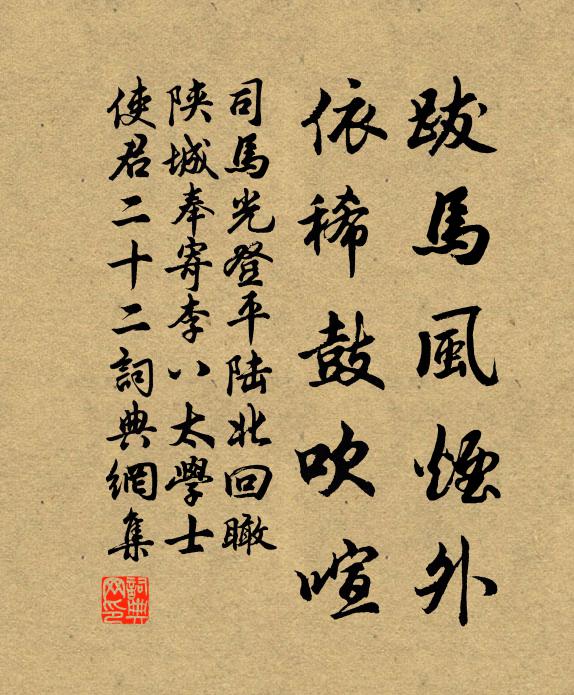 跋馬風煙外
依稀鼓吹喧
司馬光登平陸北回瞰
陝城奉寄李八太學士
使君二十二詞典網集
詞典网印